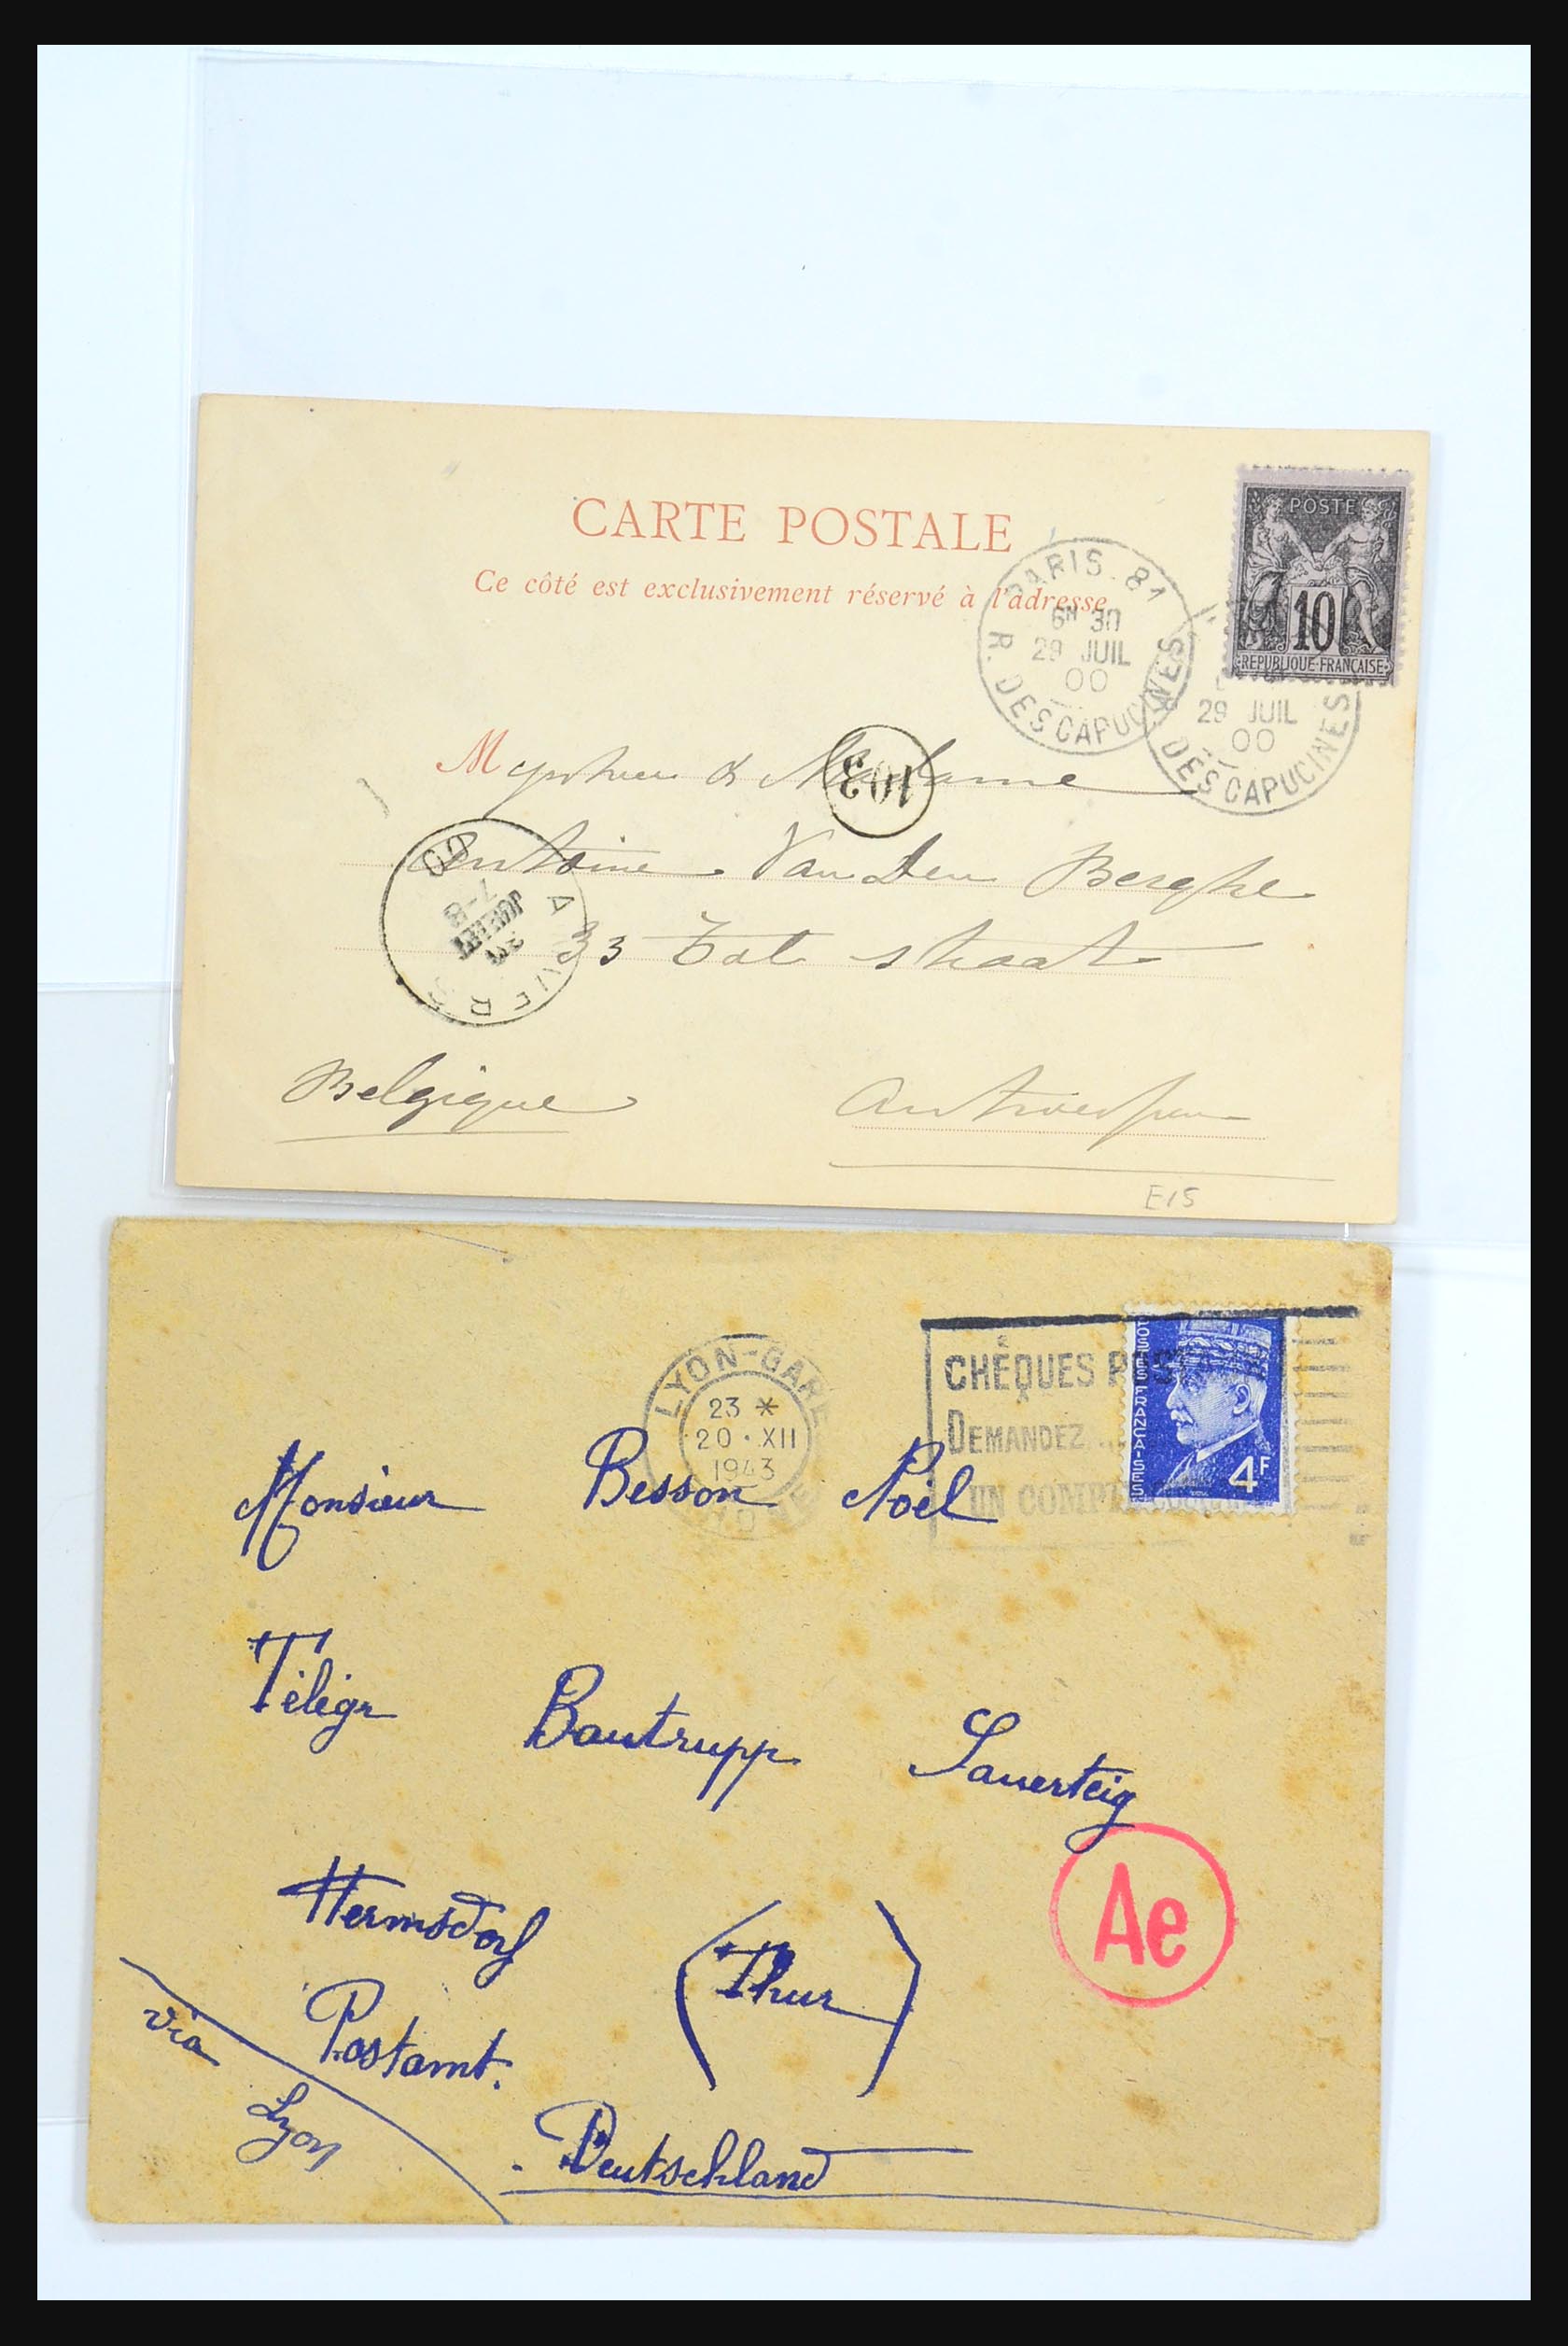 CARTE POSTALE
Ce côté est exclusivement réservé à l'adresse
POSTE
10
REPUBLIQUE FRANCAISE
PARIS. 81
6H 30
29 JUIL
00
R. DES CAPUCINES
29 JUIL
00
DES CAPUCINES
M & Madame
103
Antoine Van Den Berghe
33 straat
ANVERS
7-8
JUILLET
30
00
Belgique
Antwerpen
E15
LYON-GARE
23 *
20 · XII
1943
CHÈQUES POST
DEMANDEZ...
UN COMPT
POSTES FRANCAISES
4F
Monsieur Besson Noël
Télégr Bautrupp Sauerteig
Ae
Hermsdorf (Thur)
Postamt.
via Lyon
Deutschland